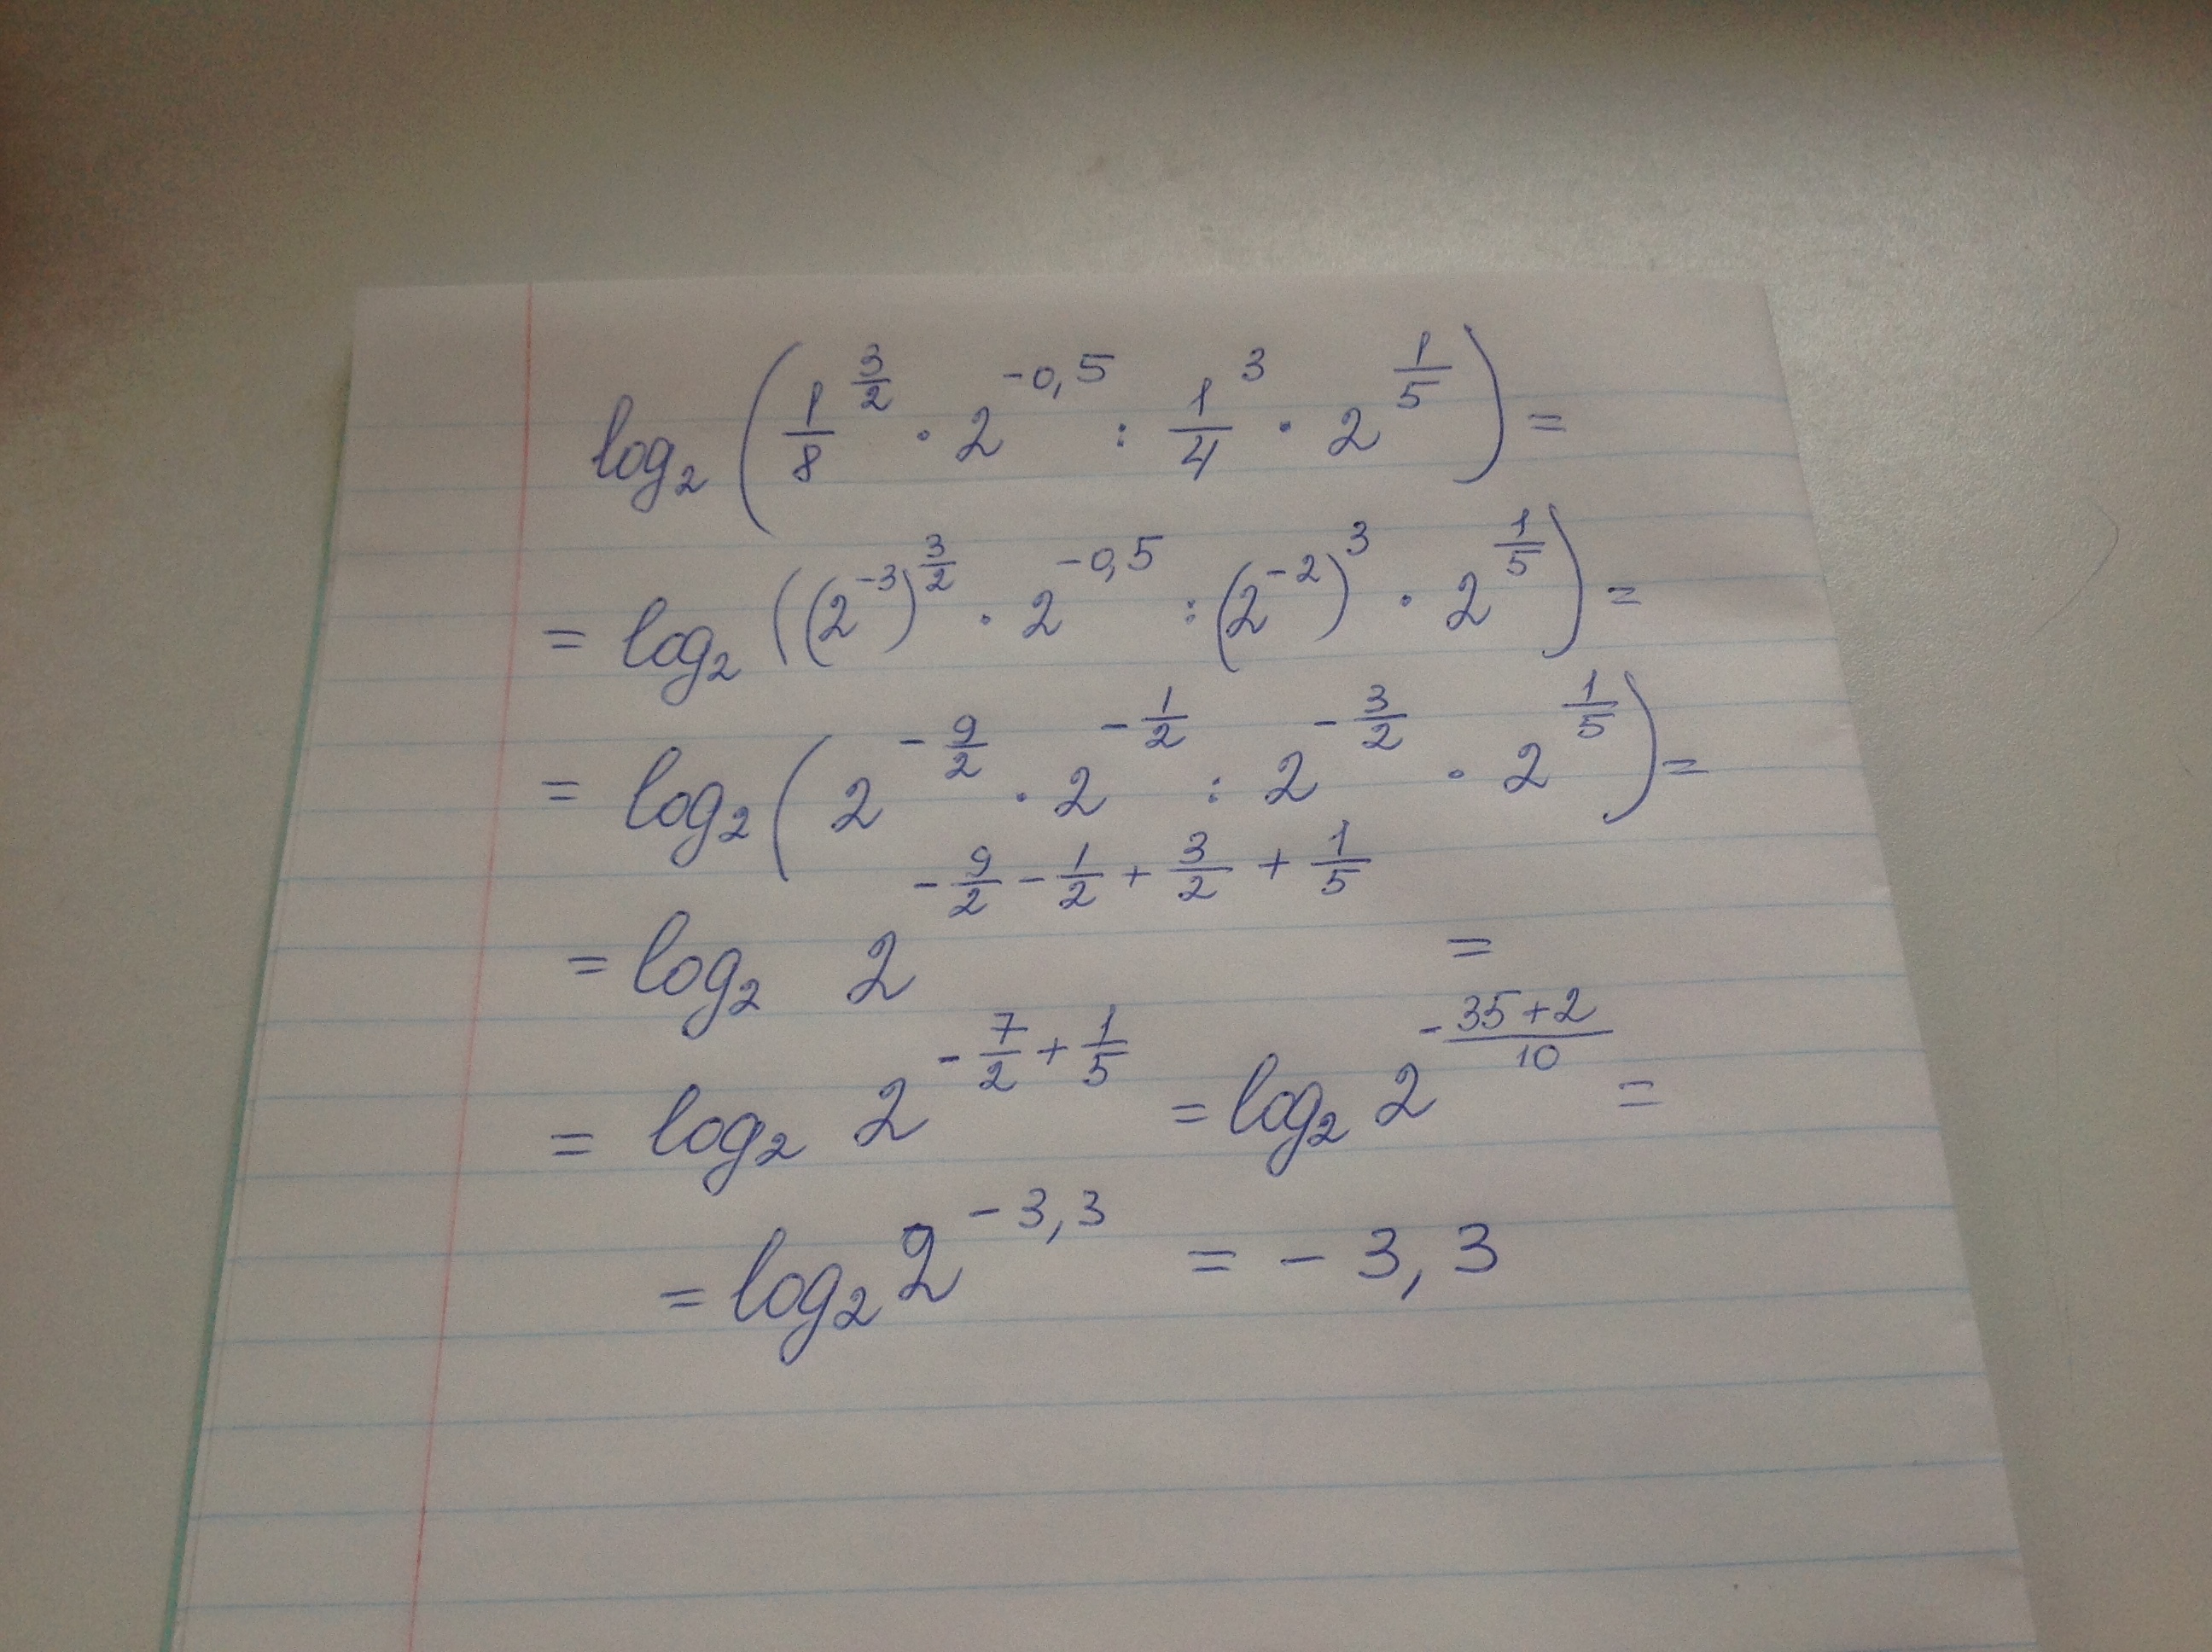 log₂ (1/8^(3/2) · 2^(-0,5) : 1/4^3 · 2^(1/5)) =
= log₂ ((2^(-3))^(3/2) · 2^(-0,5) : (2^(-2))^3 · 2^(1/5)) =
= log₂ (2^(-9/2) · 2^(-1/2) : 2^(-3/2) · 2^(1/5)) =
= log₂ 2^(-9/2 - 1/2 + 3/2 + 1/5) =
= log₂ 2^(-7/2 + 1/5) = log₂ 2^(-(35+2)/10) =
= log₂ 2^(-3,3) = -3,3